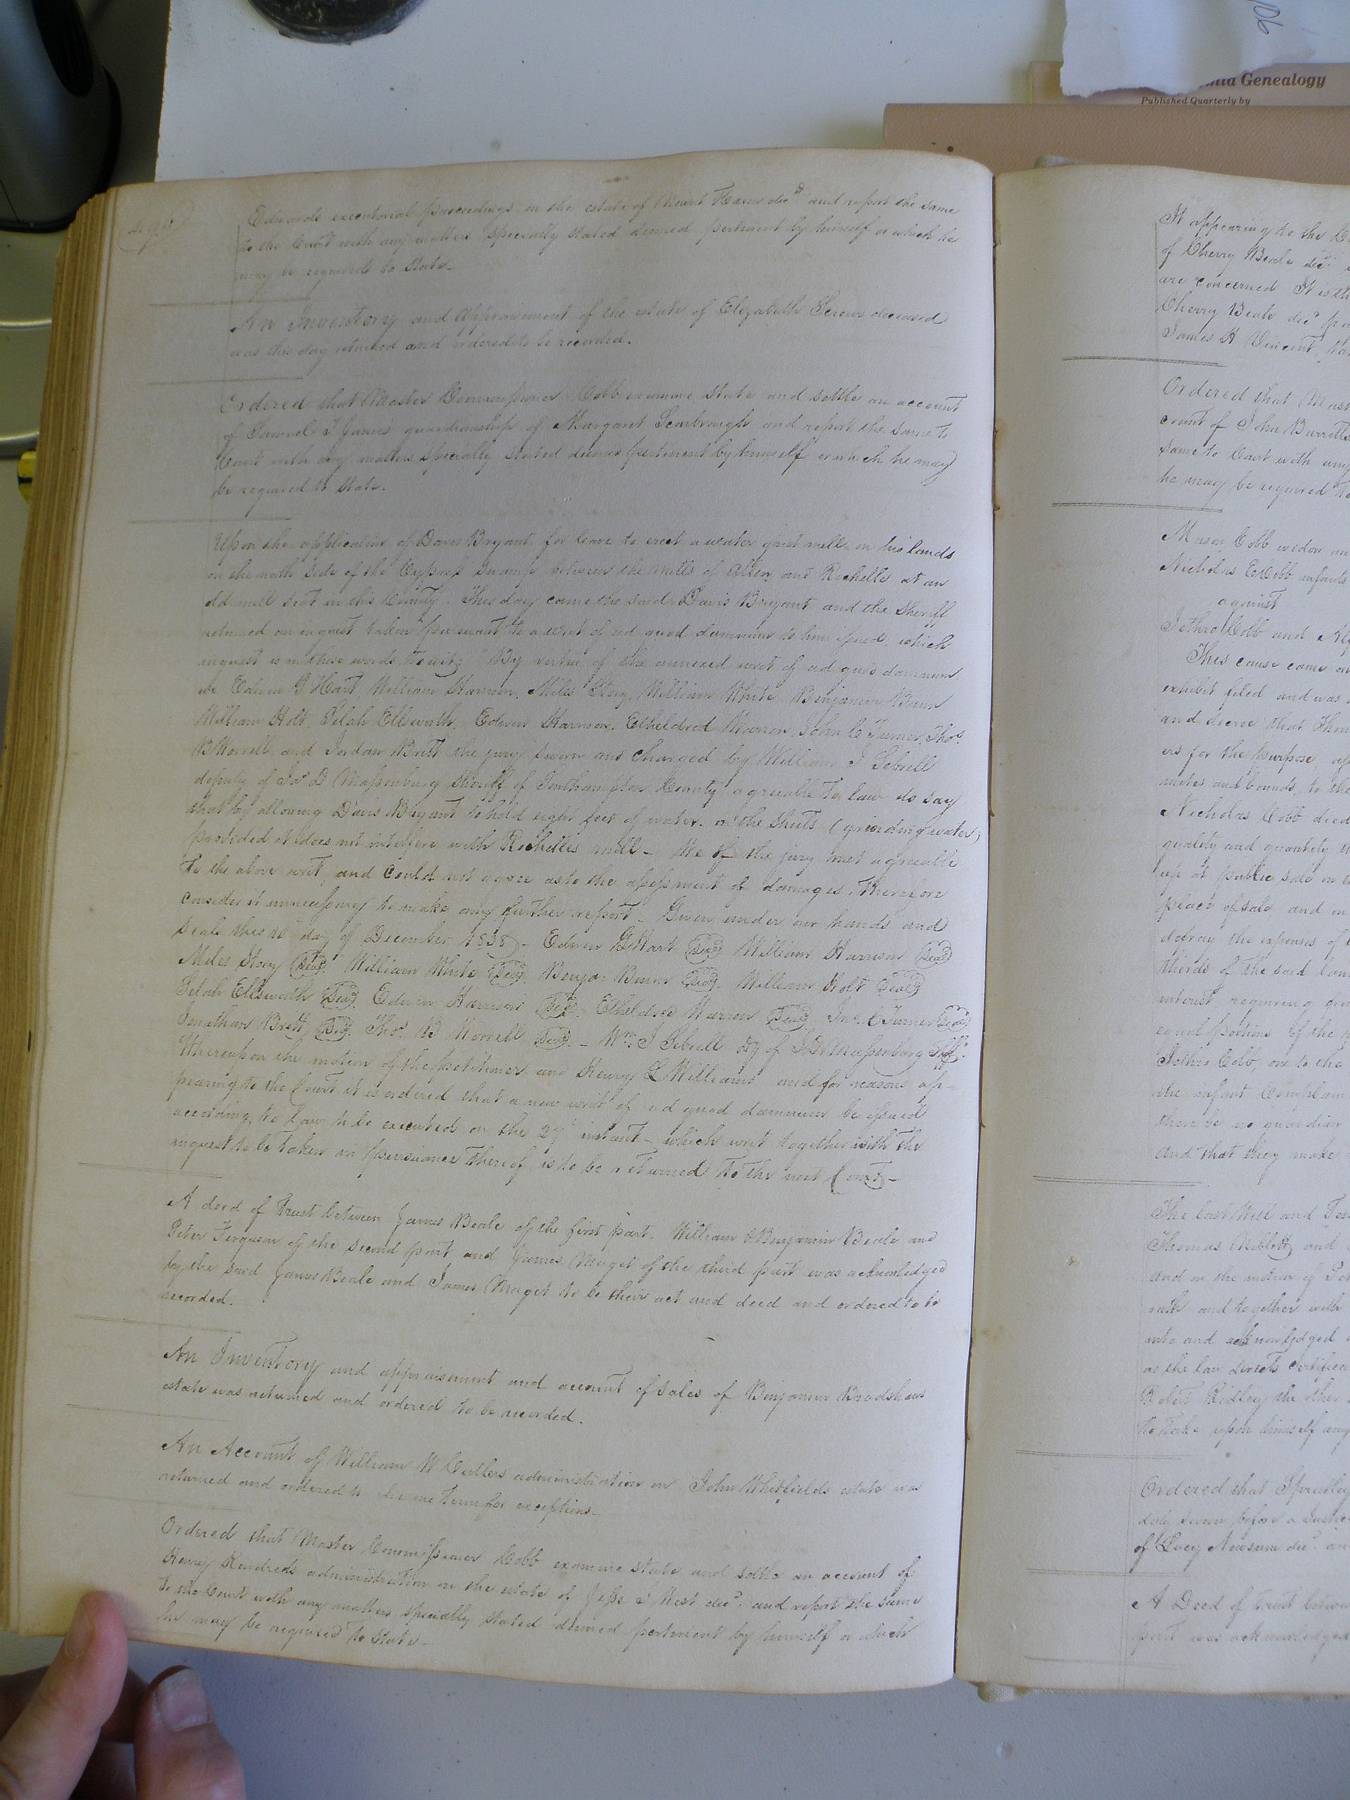 Genealogy
Published Quarterly by
Edwards executorial proceedings on the estate of Newit Harris dec^d and report the same
to the Court with any matters specially stated deemed pertinent by himself or which he
may be required to state.
An Inventory and appraisement of the estate of Elizabeth deceased
was this day returned and ordered to be recorded.
Ordered that Master Commissioner Cobb examine state and settle an account
of Samuel I James guardianship of Margaret Scarbrough and report the same to
Court with any matters specially stated deemed pertinent by himself or which he may
be required to state.
Upon the application of Davis Bryant for leave to erect a water grist mill on his lands
on the north side of the Cypress swamp between the mills of and Rochelle at an
old mill seat in this County. This day came the said Davis Bryant and the Sheriff
returned an inquest taken pursuant to a writ of ad quod damnum to him issued, which
inquest is in these words to wit; "By virtue of the annexed writ of ad quod damnum
we Edwin G Hart William Harrison, Miles Story, William White, Benjamin
William Holt, Selah Ellsworth, Edwin Harrison, Etheldred Warren, John C Turner, Tho^s.
B Worrell, and Jordan Britt the jury sworn and charged by William J Sebrell
deputy of Jn^o D Massenburg sheriff of Southampton County agreeable to law do say
that by allowing Davis Bryant to hold eight feet of water in the (grinding water)
provided it does not interfere with Rochelles mill - We of the jury met agreeable
to the above writ, and could not agree as to the assessment of damages, Therefore
consider it unnecessary to make any further report. Given under our hands and
seals this 15 day of December 1838. Edwin G Hart (Seal) William Harrison (Seal)
Miles Story (Seal) William White (Seal) Benja: (Seal) William Holt (Seal)
Selah Ellsworth (Seal) Edwin Harrison (Seal) Etheldred Warren (Seal) Jno. C Turner (Seal)
Jonathan Britt (Seal) Tho^s B Worrell (Seal) - W^m J Sebrell dy of J D Massenburg Shff.
Whereupon the motion of the petitioner and Henry L Williams and for reasons ap-
pearing to the Court it is ordered that a new writ of ad quod damnum be issued
according to law to be executed on the 27 instant - which writ together with the
inquest to be taken in pursuance thereof is to be returned to the next Court -
A deed of trust between James Beale of the first part. William & Benjamin Beale and
Peter Ferguson of the second part and James Maget of the third part was acknowledged
by the said James Beale and James Maget to be their act and deed and ordered to be
recorded.
An Inventory and appraisement and account of sales of Benjamin Bradshaws
estate was returned and ordered to be recorded.
An Account of William W Cutlers administration on John Whitfields estate was
returned and ordered to lie one term for exceptions -
Ordered that Master Commissioner Cobb examine state and settle an account of
Henry Kindreds administration on the estate of Jesse S West dec^d. and report the same
to the Court with any matters specially stated deemed pertinent by himself or which
he may be required to state -
It appearing to the
of Cherry Beale dec^d
are concerned It is
Cherry Beale dec^d
James H Vincent,
Ordered that
count of John
same to Court with any
he may be required to
Mason Cobb widow
Nicholas E Cobb infants
against
Jethro Cobb and
This cause came on
exhibit filed and was
and decree that
ers for the purpose,
metes and bounds, to
Nicholas Cobb died
quality and quantity
up at public sale on
place of sale and
defray the expenses of
thirds of the said land
interest, requiring
equal portions
Jethro Cobb, one to the
the infant Complain
there be no guardian
and that they make
The last Will and
Thomas and
and on the motion of
oath and together with
into and acknowledged
as the law directs certificate
Robert Ridley the other
to take upon himself any
Ordered that Spratley
duly sworn before a
of Lucy Newsum dec^d. an
A Deed of trust between
part was acknowledged